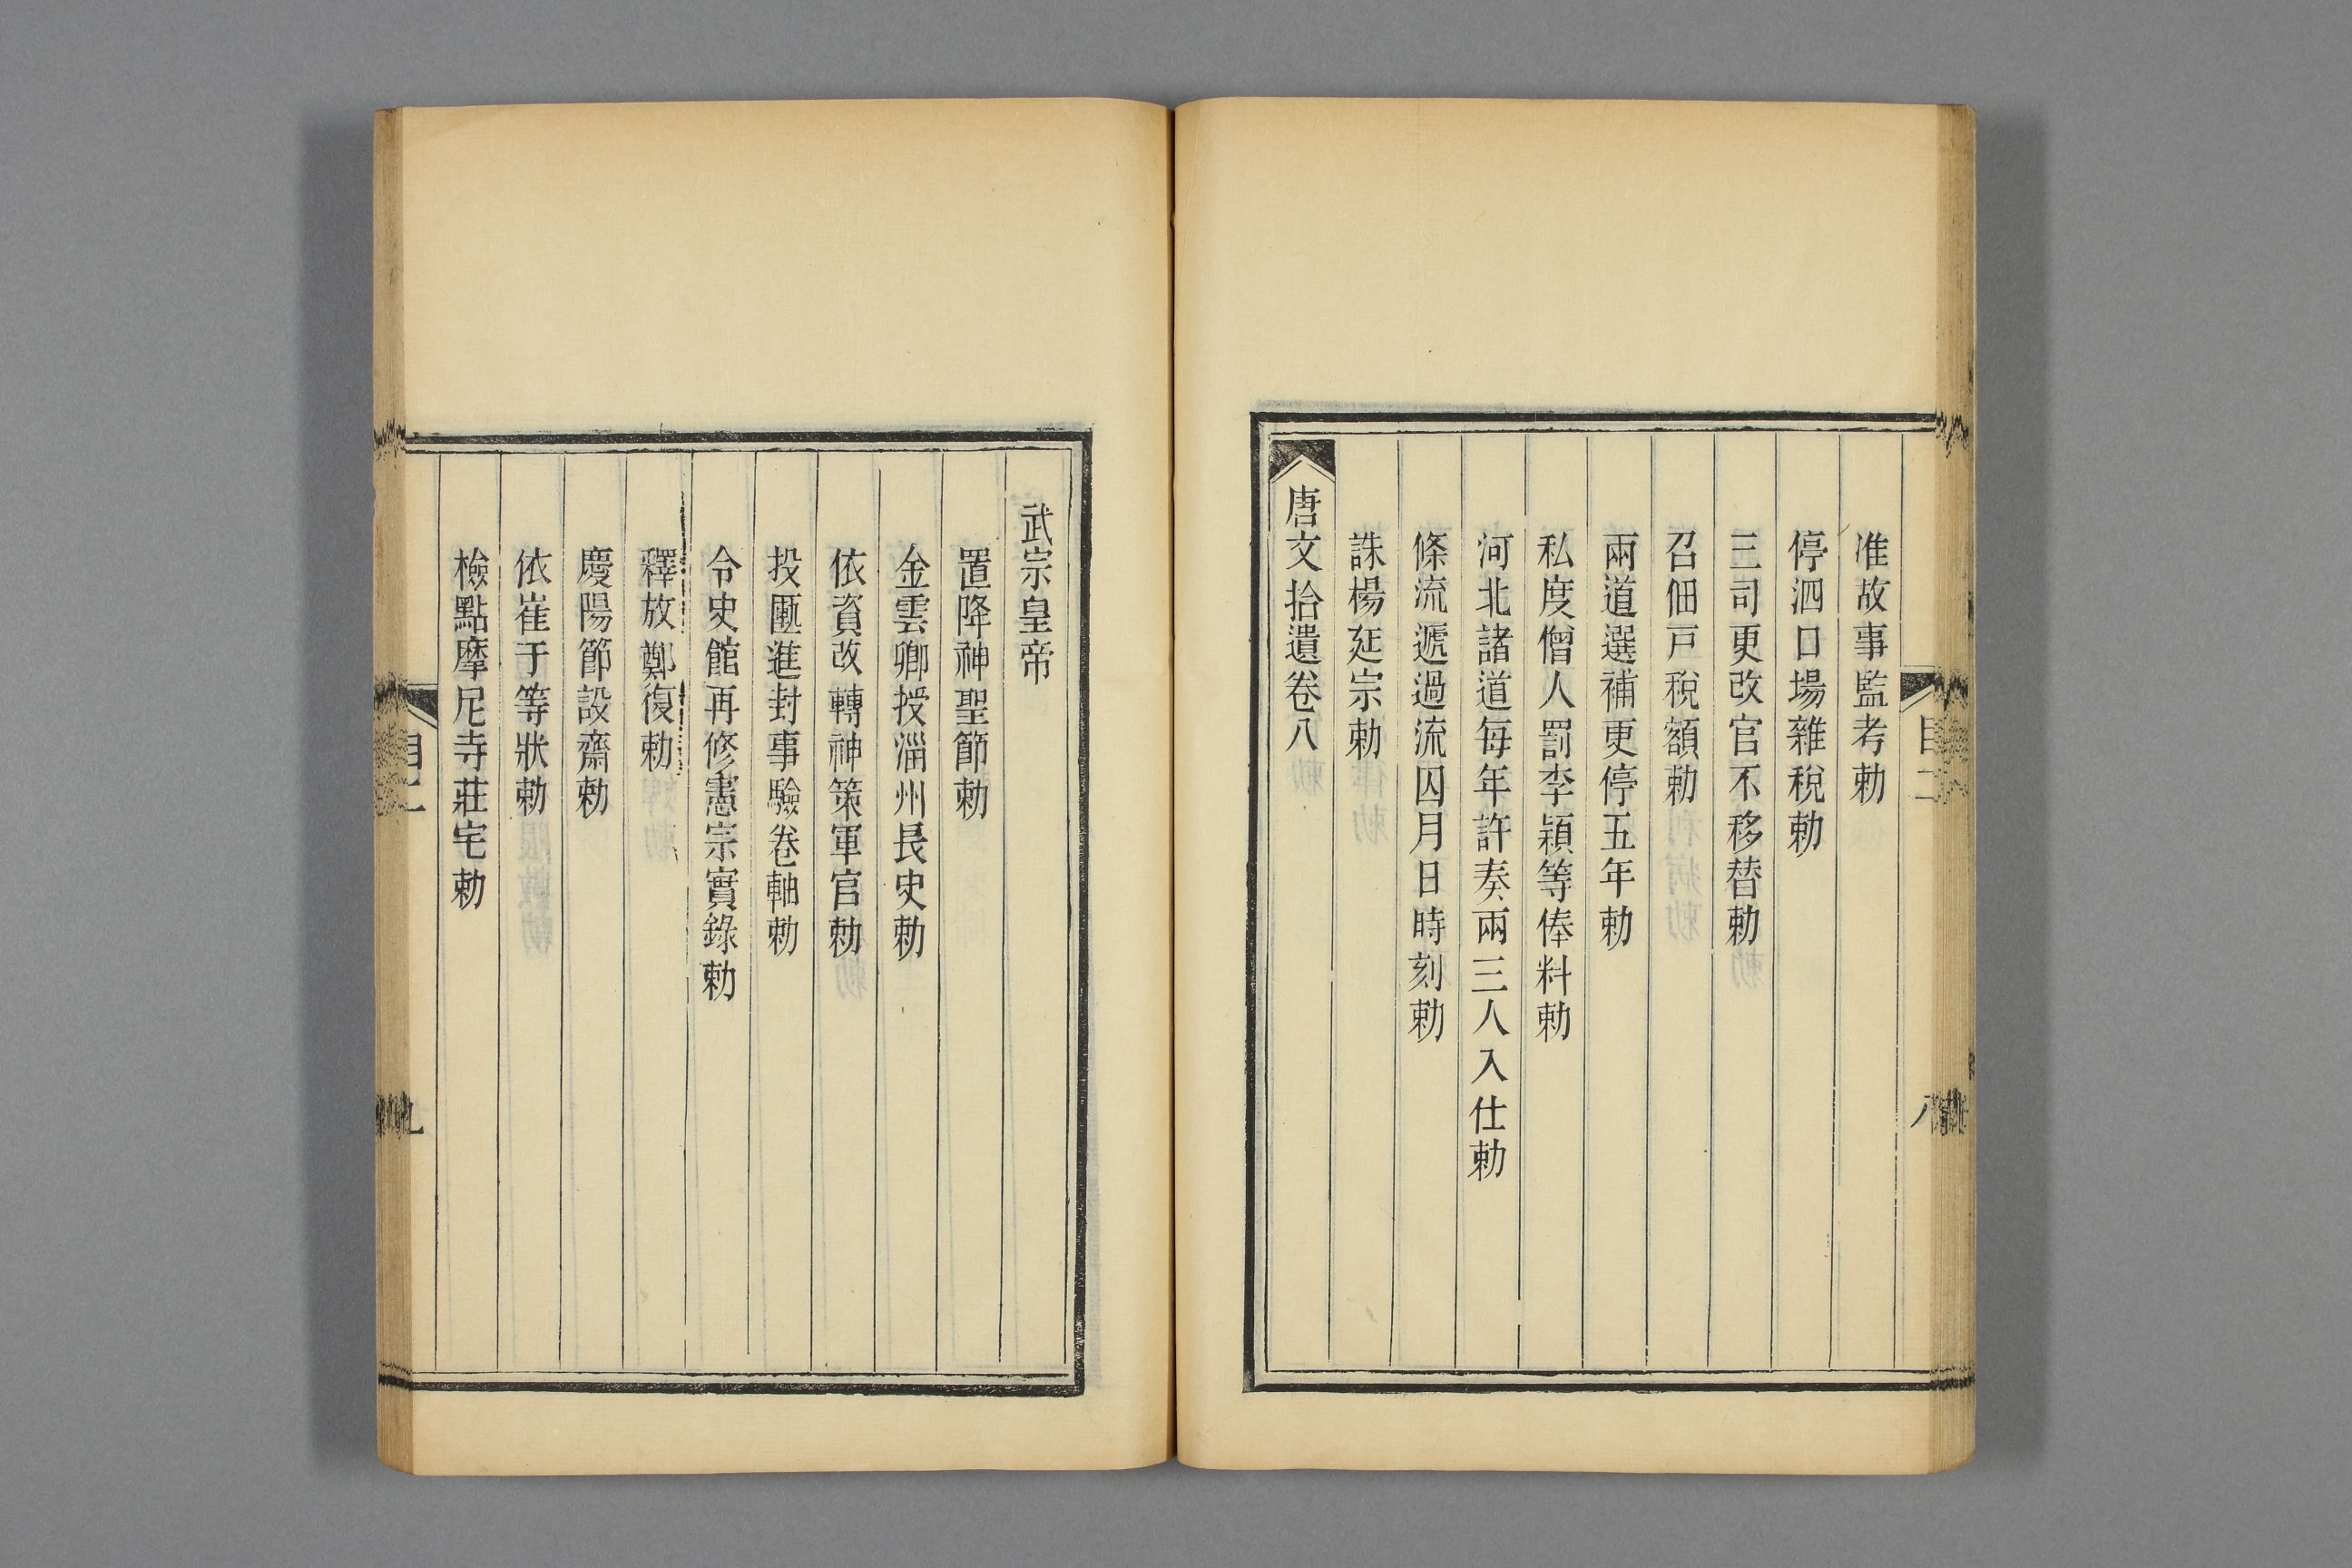 准故事監考勅
停泗口場雜稅勅
三司更改官不移替勅
召佃戸稅額勅
兩道選補更停五年勅
私度僧人罰李穎等俸料勅
河北諸道每年許奏兩三人入仕勅
條流遞過流囚月日時刻勅
誅楊延宗勅
唐文拾遺卷八
武宗皇帝
置降神聖節勅
金雲卿授淄州長史勅
依資改轉神策軍官勅
投匭進封事驗卷軸勅
令史館再修憲宗實錄勅
釋放鄭復勅
慶陽節設齋勅
依崔于等狀勅
檢點摩尼寺莊宅勅